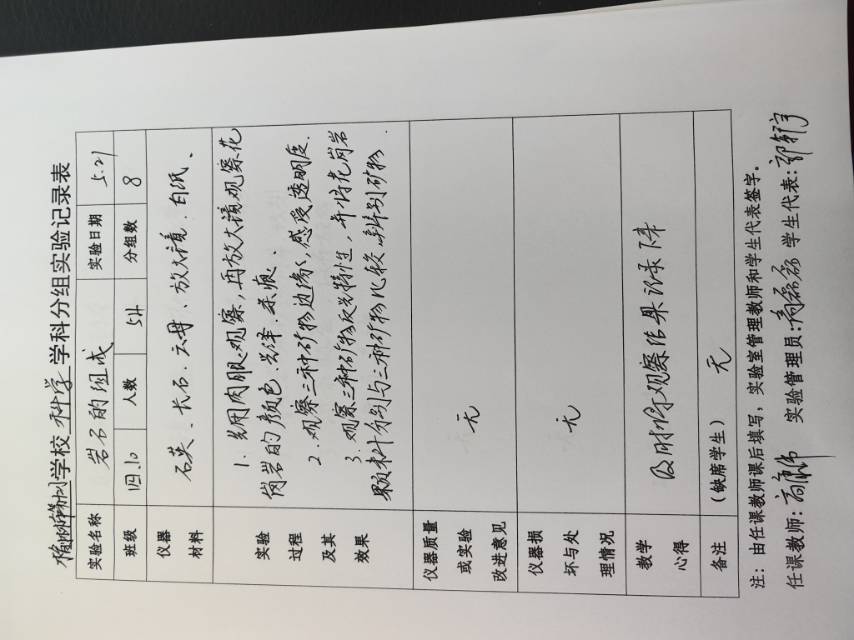 学校 科学 学科分组实验记录表
实验名称 岩石的组成 实验日期 5.21
班级 四.10 人数 54 分组数 8
仪器材料 石英、长石、云母、放大镜、白纸、
实验过程及其效果
1. 先用肉眼观察,再放大镜观察花
岗岩的颜色、光泽、条痕、
2. 观察三种矿物边缘,感受透明度.
3. 观察三种矿物反光特性,并将花岗岩
颗粒分别与三种矿物比较 辨别矿物.
仪器质量或实验改进意见 无
仪器损坏与处理情况 无
教学心得 及时将观察结果记录下来
备注 (缺席学生) 无
注:由任课教师课后填写,实验室管理教师和学生代表签字。
任课教师: 实验管理员: 学生代表: